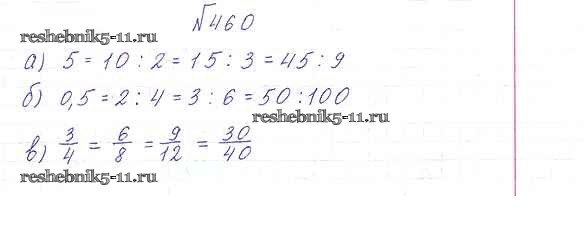 №460
reshebnik5-11.ru
а) 5 = 10 : 2 = 15 : 3 = 45 : 9
б) 0,5 = 2 : 4 = 3 : 6 = 50 : 100
reshebnik5-11.ru
в) 3/4 = 6/8 = 9/12 = 30/40
reshebnik5-11.ru